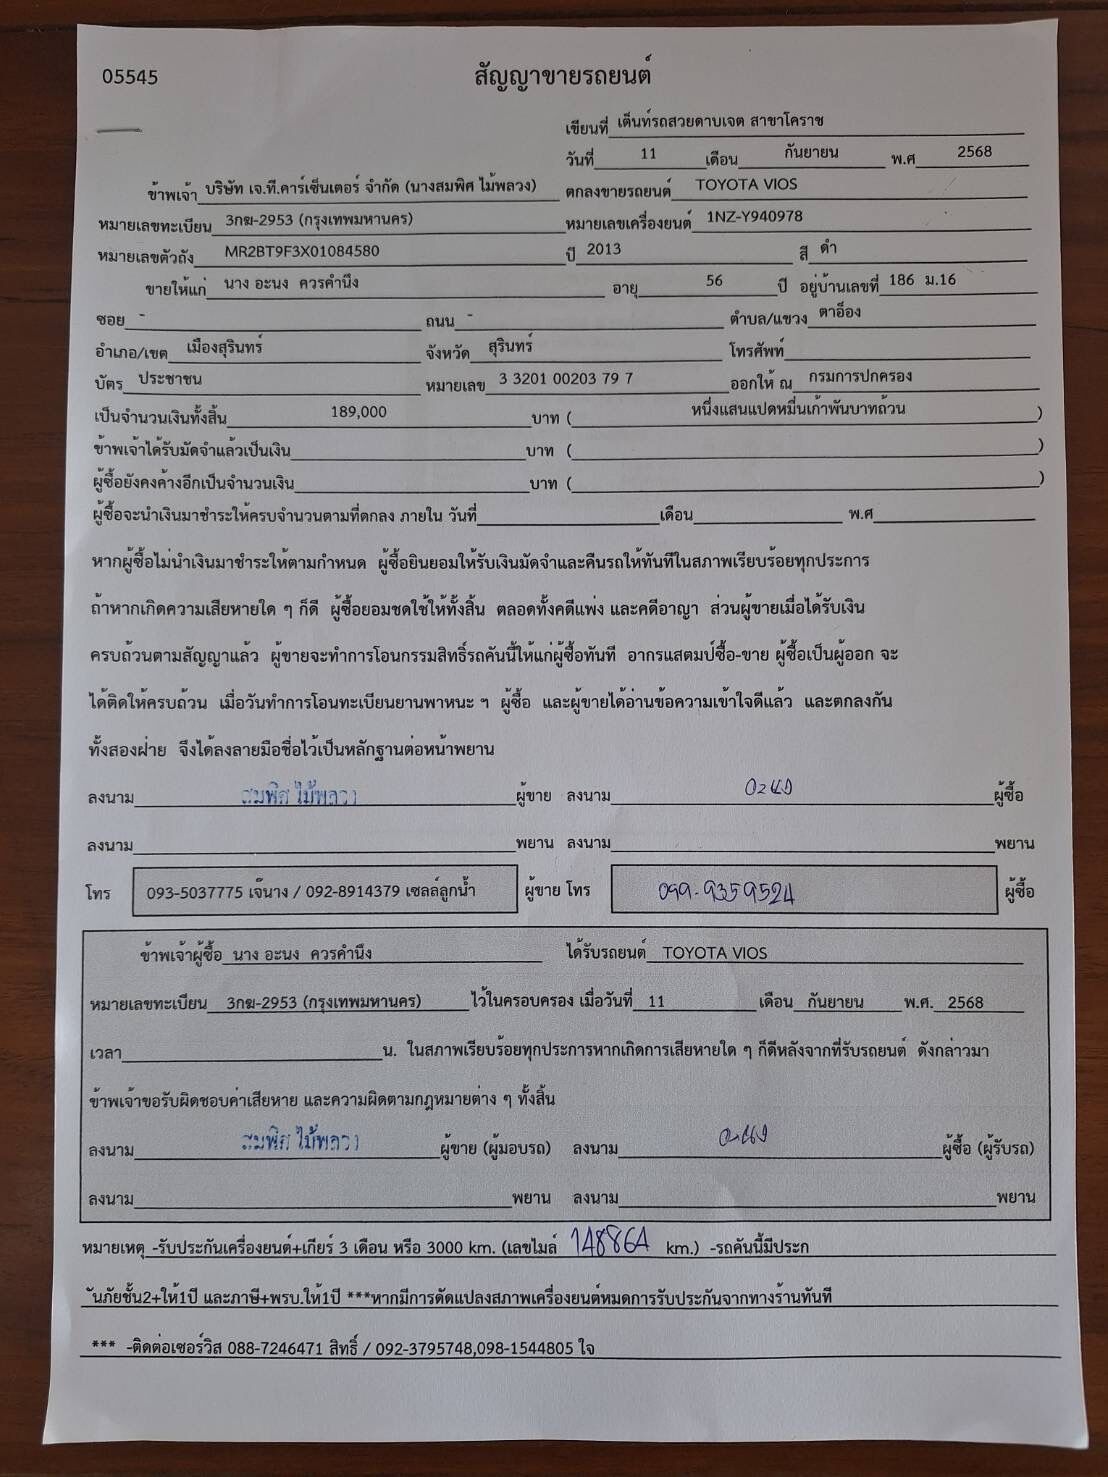 05545
สัญญาขายรถยนต์
เขียนที่ เต็นท์รถสวยดาบเจต สาขาโคราช
วันที่ 11 เดือน กันยายน พ.ศ 2568
ข้าพเจ้า บริษัท เจ.ที.คาร์เซ็นเตอร์ จำกัด (นางสมพิศ ไม้พลวง) ตกลงขายรถยนต์ TOYOTA VIOS
หมายเลขทะเบียน 3กฆ-2953 (กรุงเทพมหานคร) หมายเลขเครื่องยนต์ 1NZ-Y940978
หมายเลขตัวถัง MR2BT9F3X01084580 ปี 2013 สี ดำ
ขายให้แก่ นาง อะนง ควรคำนึง อายุ 56 ปี อยู่บ้านเลขที่ 186 ม.16
ซอย - ถนน - ตำบล/แขวง ตาอ็อง
อำเภอ/เขต เมืองสุรินทร์ จังหวัด สุรินทร์ โทรศัพท์
บัตร ประชาชน หมายเลข 3 3201 00203 79 7 ออกให้ ณ กรมการปกครอง
เป็นจำนวนเงินทั้งสิ้น 189,000 บาท ( หนึ่งแสนแปดหมื่นเก้าพันบาทถ้วน )
ข้าพเจ้าได้รับมัดจำแล้วเป็นเงิน บาท ( )
ผู้ซื้อยังคงค้างอีกเป็นจำนวนเงิน บาท ( )
ผู้ซื้อจะนำเงินมาชำระให้ครบจำนวนตามที่ตกลง ภายใน วันที่ เดือน พ.ศ
หากผู้ซื้อไม่นำเงินมาชำระให้ตามกำหนด ผู้ซื้อยินยอมให้รับเงินมัดจำและคืนรถให้ทันทีในสภาพเรียบร้อยทุกประการ
ถ้าหากเกิดความเสียหายใด ๆ ก็ดี ผู้ซื้อยอมชดใช้ให้ทั้งสิ้น ตลอดทั้งคดีแพ่ง และคดีอาญา ส่วนผู้ขายเมื่อได้รับเงิน
ครบถ้วนตามสัญญาแล้ว ผู้ขายจะทำการโอนกรรมสิทธิ์รถคันนี้ให้แก่ผู้ซื้อทันที อากรแสตมป์ซื้อ-ขาย ผู้ซื้อเป็นผู้ออก จะ
ได้ติดให้ครบถ้วน เมื่อวันทำการโอนทะเบียนยานพาหนะ ฯ ผู้ซื้อ และผู้ขายได้อ่านข้อความเข้าใจดีแล้ว และตกลงกัน
ทั้งสองฝ่าย จึงได้ลงลายมือชื่อไว้เป็นหลักฐานต่อหน้าพยาน
ลงนาม สมพิศ ไม้พลวง ผู้ขาย ลงนาม อะนง ผู้ซื้อ
ลงนาม พยาน ลงนาม พยาน
โทร 093-5037775 เจ๊นาง / 092-8914379 เซลล์ลูกน้ำ ผู้ขาย โทร 099-9359524 ผู้ซื้อ
ข้าพเจ้าผู้ซื้อ นาง อะนง ควรคำนึง ได้รับรถยนต์ TOYOTA VIOS
หมายเลขทะเบียน 3กฆ-2953 (กรุงเทพมหานคร) ไว้ในครอบครอง เมื่อวันที่ 11 เดือน กันยายน พ.ศ. 2568
เวลา น. ในสภาพเรียบร้อยทุกประการหากเกิดการเสียหายใด ๆ ก็ดีหลังจากที่รับรถยนต์ ดังกล่าวมา
ข้าพเจ้าขอรับผิดชอบค่าเสียหาย และความผิดตามกฎหมายต่าง ๆ ทั้งสิ้น
ลงนาม สมพิศ ไม้พลวง ผู้ขาย (ผู้มอบรถ) ลงนาม อะนง ผู้ซื้อ (ผู้รับรถ)
ลงนาม พยาน ลงนาม พยาน
หมายเหตุ -รับประกันเครื่องยนต์+เกียร์ 3 เดือน หรือ 3000 km. (เลขไมล์ 148864 km.) -รถคันนี้มีประก
ันภัยชั้น2+ให้1ปี และภาษี+พรบ.ให้1ปี ***หากมีการดัดแปลงสภาพเครื่องยนต์หมดการรับประกันจากทางร้านทันที
*** -ติดต่อเซอร์วิส 088-7246471 สิทธิ์ / 092-3795748,098-1544805 ใจ